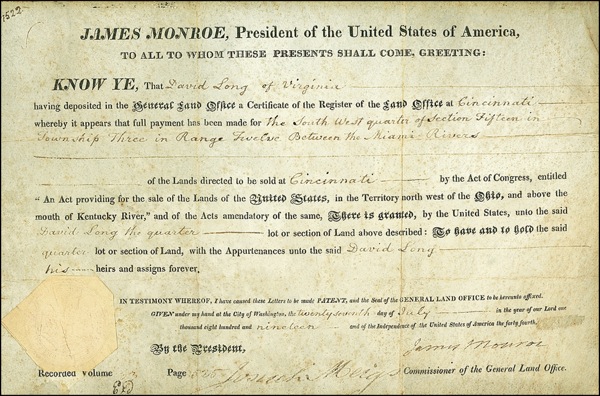 1522
JAMES MONROE, President of the United States of America,
TO ALL TO WHOM THESE PRESENTS SHALL COME, GREETING:
KNOW YE, That David Long of Virginia
having deposited in the General Land Office a Certificate of the Register of the Land Office at Cincinnati
whereby it appears that full payment has been made for the South West quarter of Section Fifteen in
Township Three in Range Twelve Between the Miami Rivers
of the Lands directed to be sold at Cincinnati by the Act of Congress, entitled
"An Act providing for the sale of the Lands of the United States, in the Territory north west of the Ohio, and above the
mouth of Kentucky River," and of the Acts amendatory of the same, There is granted, by the United States, unto the said
David Long the quarter lot or section of Land above described: To have and to hold the said
quarter lot or section of Land, with the Appurtenances unto the said David Long
his heirs and assigns forever.
IN TESTIMONY WHEREOF, I have caused these Letters to be made PATENT, and the Seal of the GENERAL LAND OFFICE to be hereunto affixed.
GIVEN under my hand at the City of Washington, the twenty seventh day of July in the year of our Lord one
thousand eight hundred and nineteen and of the Independence of the United States of America the forty fourth.
By the President,
James Monroe
Recorded Volume Page Josiah Meigs Commissioner of the General Land Office.